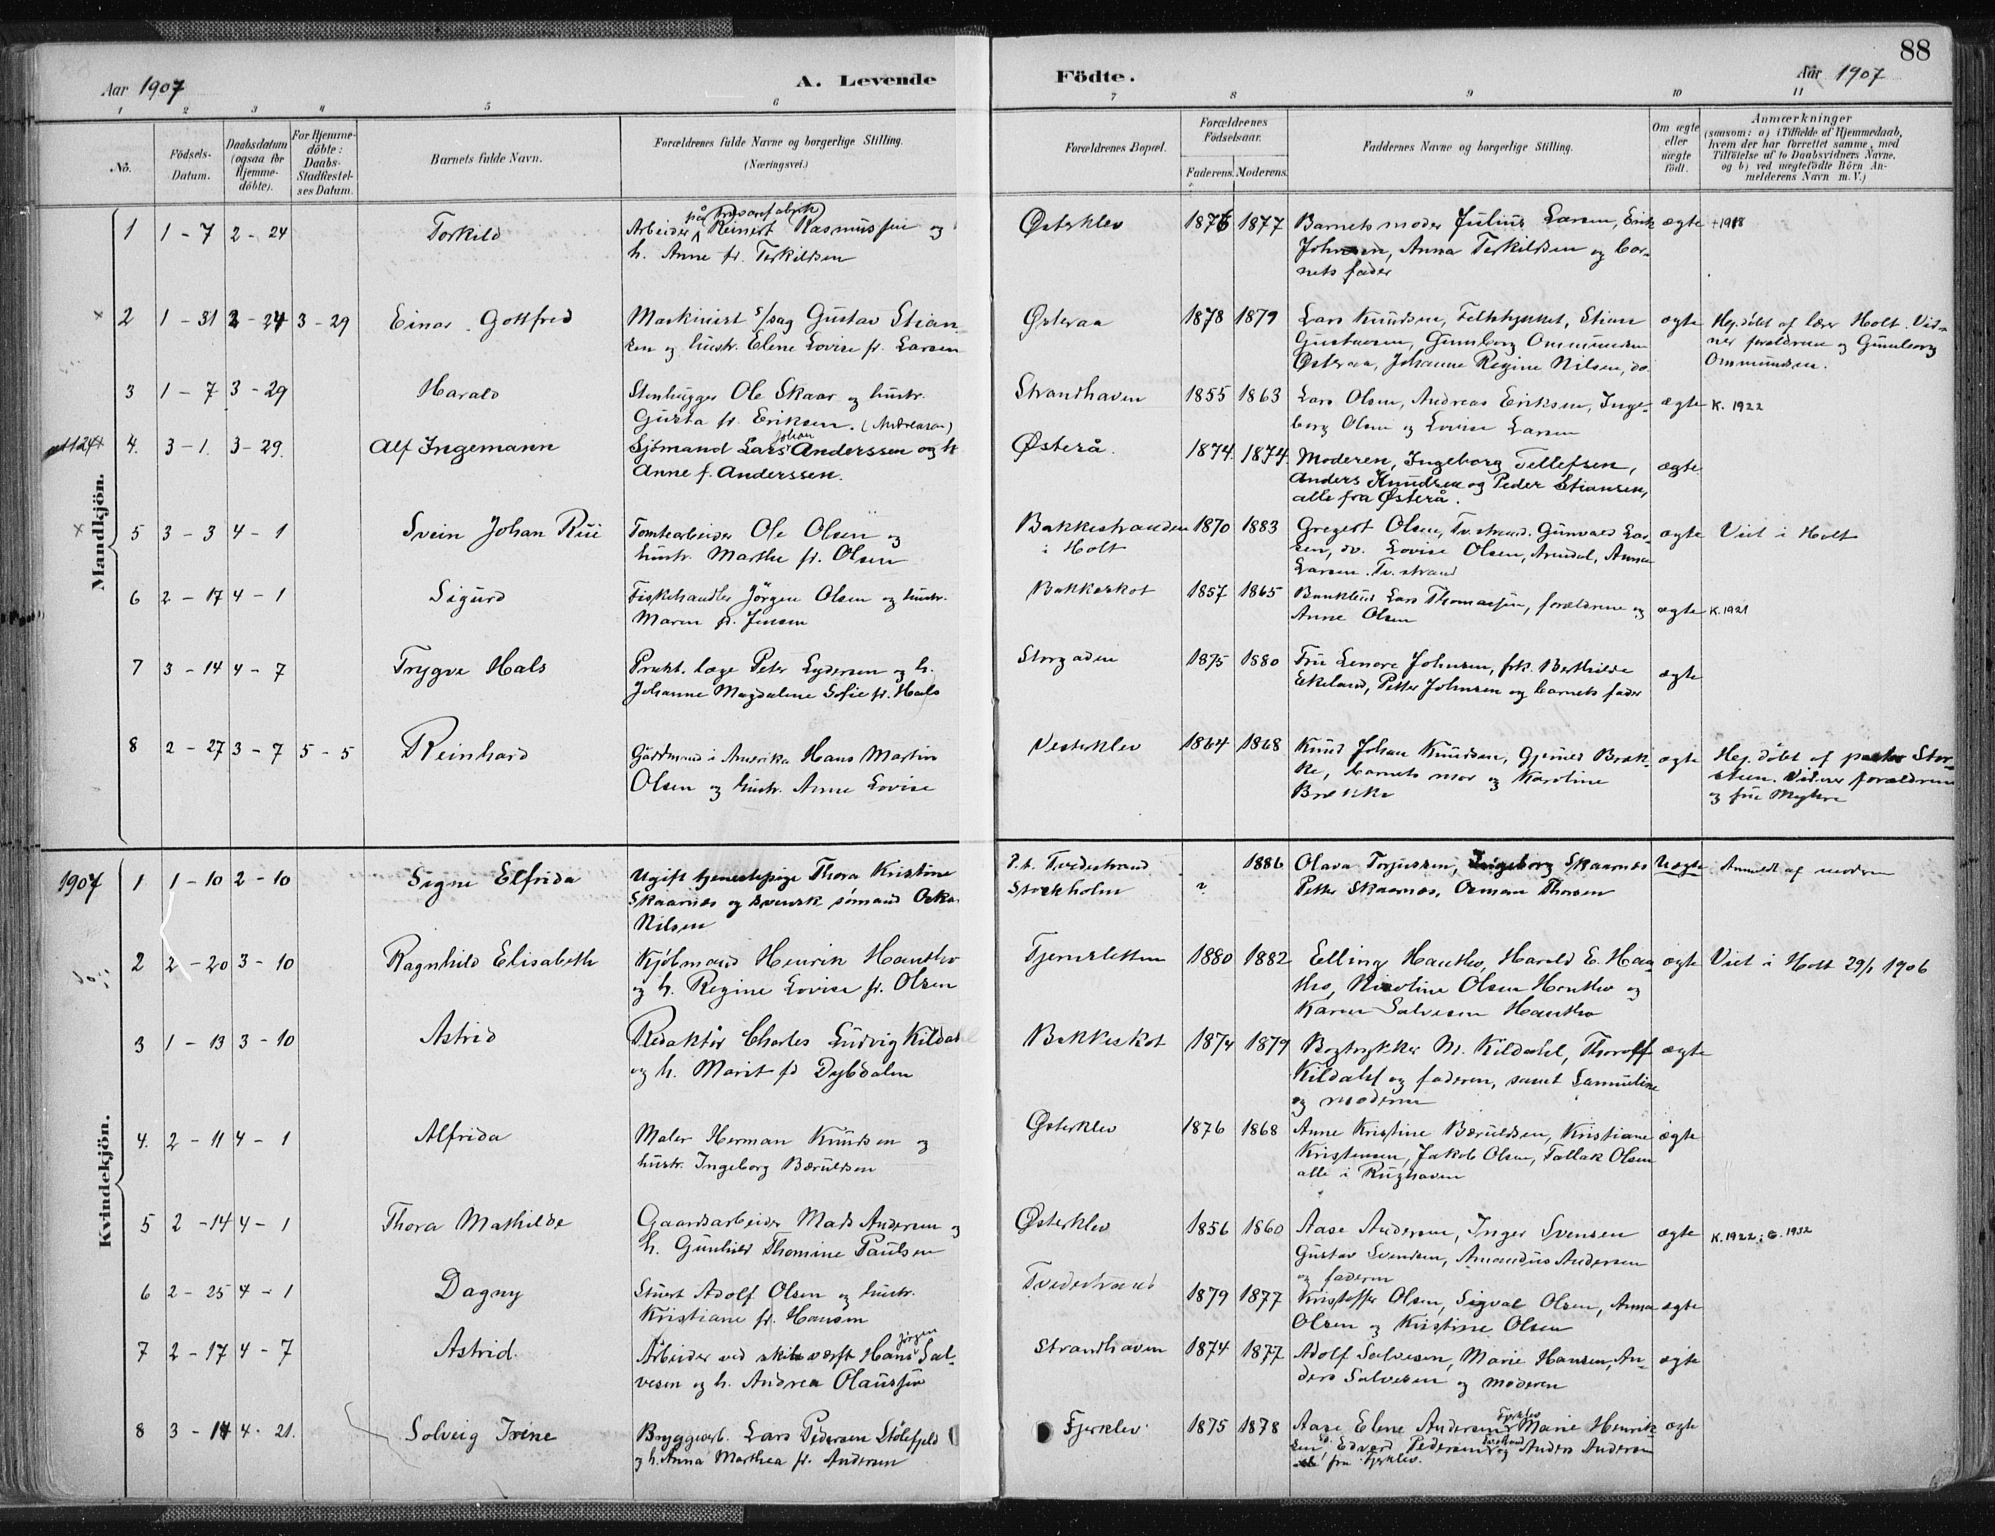 88
Aar 1907
A. Levende
Födte.
Aar 1907
1 2 3 4 5 6 7 8 9 10 11
No.
Födsels-Datum.
Daabsdatum (ogsaa for Hjemme-döbte).
For Hjemme-döbte: Daabs-Stadfæstel-ses Datum.
Barnets fulde Navn.
Forældrenes fulde Navne og borgerlige Stilling.
(Næringsvei.)
Forældrenes Bopæl.
Forældrenes Födselsaar.
Faderens. Moderens.
Faddernes Navne og borgerlige Stilling.
Om ægte eller uægte födt.
Anmærkninger
(saasom: a) i Tilfælde af Hjemmedaab,
hvem der har forrettet samme, med
Tilföielse af to Daabsvidners Navne,
og b) ved uægtefödte Börn An-
melderens Navn m. V.)
Mandkjön.
1 1-7 2-24 Torkild
Arbeider på Reinert Rasmussen og
h. Anne fr. Terkildsen
Østerklev 1876 1877
Barnets moder Julius Larsen, Erik
Johnsen, Anna Terkildsen og bar-
nets fader
ægte +1918
2 1-31 2-24 3-29 Einar Gottfred
Maskinist s/sag Gustav Stian-
sen og hustr. Elene Lovise fr. Larsen
Østeraa 1878 1879
Lars Knudsen, Stian
Gustavsen, Gunnborg Ommundsen
Østeraa, Johanne Regine Nilsen, do.
ægte
Hj. döbt af lærer Holt. Vid-
ner forældrene og Gunnborg
Ommundsen.
3 1-7 3-29 Harald
Stenhugger Ole Skaar og hustr.
Gusta fr. Eriksen. (Andreasen)
Strandhaven 1855 1863
Lars Olsen, Andreas Eriksen, Inge-
borg Olsen og Lovise Larsen
ægte K. 1922
4. 3-1. 3-29. Alf Ingemann
Sjömand Lars Johan Anderssen og h
Anne f. Anderssen.
Østerå. 1874. 1874.
Moderen, Ingeborg Tellefsen,
Anders Knudsen og Peder Stiansen,
alle fra Østerå.
ægte
5 3-3 4-1 Svein Johan Rui
Tomtearbeider Ole Olsen og
hustr. Marthe fr. Olsen
Bakkestranden
i Holt
1870 1883
Gregert Olsen, Tv. strand. Gunvald Lar-
sen, do. Lovise Olsen, Arendal, Anna
Larsen. Tv. strand
ægte Viet i Holt
6 2-17 4-1 Sigurd
Fiskehandler Jörgen Olsen og hustr.
Maren fr. Jensen
Bakkeskot 1857 1865
Lars Thomassen, forældrene og
Anne Olsen
ægte K. 1921
7 3-14 4-7 Trygve Hals
Prakt. læge Peter Lydersen og h.
Johanne Magdalene Sofie fr. Hals
Storgaden 1875 1880
Fru Lenore Johnsen, frk. Berthilde
Ekeland, Petter Johnsen og barnets fader
ægte
8 2-27 3-7 5-5 Reinhard
Gårdmand i Amerika Hans Martin
Olsen og hustr. Anne Lovise
Vesterklev 1864 1868
Knud Johan Knudsen, Gjerulf Bræk-
ke, barnets mor og Karoline
Brække
ægte
Hj. döbt af pastor Stor-
steen. Vidner forældrene
og fru
Kvindekjön.
1907
1 1-10 2-10 Signe Elfrida
Ugift tjenestepige Thora Kristine
Skaarnes og svensk sömand Oskar
Nilsen
P.t. Tvedestrand
Stockholm
? 1886
Olava Torjussen, Ingeborg Skaarnes
Petter Skaarnes, Osman Thorsen
Uægte Anmeldt af moderen
2 2-20 3-10 Ragnhild Elisabeth
Kjöbmand Henrik Hantho
og h. Regine Lovise fr. Olsen
Tjernsletten 1880 1882
Elling Hantho, Harald E. Han-
tho, Nicoline Olsen Hantho og
Karen Salvesen Hantho
ægte Viet i Holt 29/1 1906
3 1-13 3-10 Astrid
Redaktör Charles Ludvig Kildahl
og h. Marit fd Dybdalen
Bakkeskot 1874 1879
Bogtrykker M. Kildahl, Thoralf
Kildahl og faderen, samt Samuline
og moderen
ægte
4. 2-11 4-1 Alfrida
Maler Herman Knudsen og
hustr. Ingeborg Bæruldsen
Østerklev 1876 1868
Anne Kristine Bæruldsen, Kristiane
Kristensen, Jakob Olsen, Tallak Olsen
alle i Rughaven
ægte
5 2-14 4-1 Thora Mathilde
Gaardsarbeider Mads Andersen og
h. Gunhild Thomine Paulsen
Østerklev 1856 1860
Aase Andersen, Inger Svensen
Gustav Svendsen, Amandus Andersen
og faderen
ægte K. 1922; G. 1932
6 2-25 4-1 Dagny
Stuert Adolf Olsen og hustr.
Kristiane fr. Hansen
Tvedestrand 1879 1877
Kristoffer Olsen, Sigval Olsen, Anna
Olsen og Kristine Olsen
ægte
7 2-17 4-7 Astrid.
Arbeider ved skibsværft Hans Jörgen Sal-
vesen og h. Andrea Olaussen
Strandhaven 1874 1877
Adolf Salvesen, Marie Hansen, An-
ders Salvesen og moderen
ægte
8 3-14 4-21. Solveig Irene
Bryggearb. Lars Pedersen Stölefjeld
og h. Anna Marthea fr. Andersen
Fjerklev 1875 1878
Aase Elene Andersen Fjerklev Marie Henrik-
sen, Edvard Pedersen og Anders Andersen
fra Fjerklev.
ægte